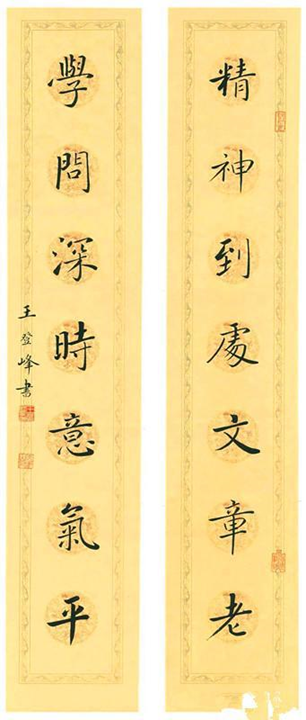 精神到處文章老
學問深時意氣平
王登峰書